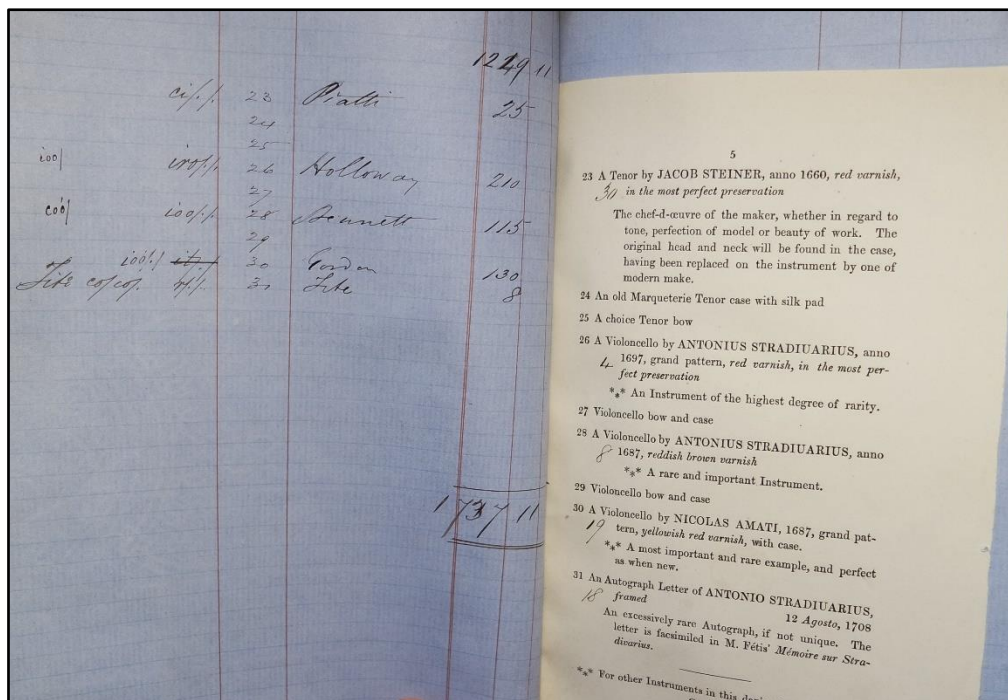 1249 11
23 Piatti 25
24
25
100/ 26 Holloway 210
27
28 Bennett 115
29
30 Gordon 130
31 8
1737 11
5
23 A Tenor by JACOB STEINER, anno 1660, red varnish,
30 in the most perfect preservation
The chef-d-œuvre of the maker, whether in regard to
tone, perfection of model or beauty of work. The
original head and neck will be found in the case,
having been replaced on the instrument by one of
modern make.
24 An old Marqueterie Tenor case with silk pad
25 A choice Tenor bow
26 A Violoncello by ANTONIUS STRADIUARIUS, anno
4 1697, grand pattern, red varnish, in the most per-
fect preservation
*** An Instrument of the highest degree of rarity.
27 Violoncello bow and case
28 A Violoncello by ANTONIUS STRADIUARIUS, anno
8 1687, reddish brown varnish
*** A rare and important Instrument.
29 Violoncello bow and case
30 A Violoncello by NICOLAS AMATI, 1687, grand pat-
19 tern, yellowish red varnish, with case.
*** A most important and rare example, and perfect
as when new.
31 An Autograph Letter of ANTONIO STRADIUARIUS,
18 framed 12 Agosto, 1708
An excessively rare Autograph, if not unique. The
letter is facsimiled in M. Fétis' Mémoire sur Stra-
divarius.
*** For other Instruments in this